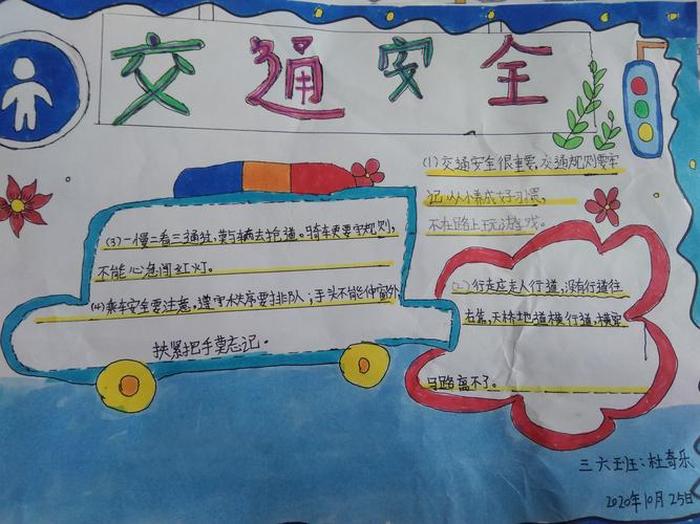 交通安全
(1)交通安全很重要,交通规则要牢
记从小养成好习惯,
不在路上玩游戏。
(2)行走应走人行道,没有行道往
右靠,天桥地道横行道,横穿
马路离不了。
(3)一慢二看三通过,莫与车辆去抢道。骑车更要守规则,
不能心急闯红灯。
(4)乘车安全要注意,遵守秩序要排队;手头不能伸窗外
扶紧把手莫忘记。
三六班:杜奇乐
2020年10月25日